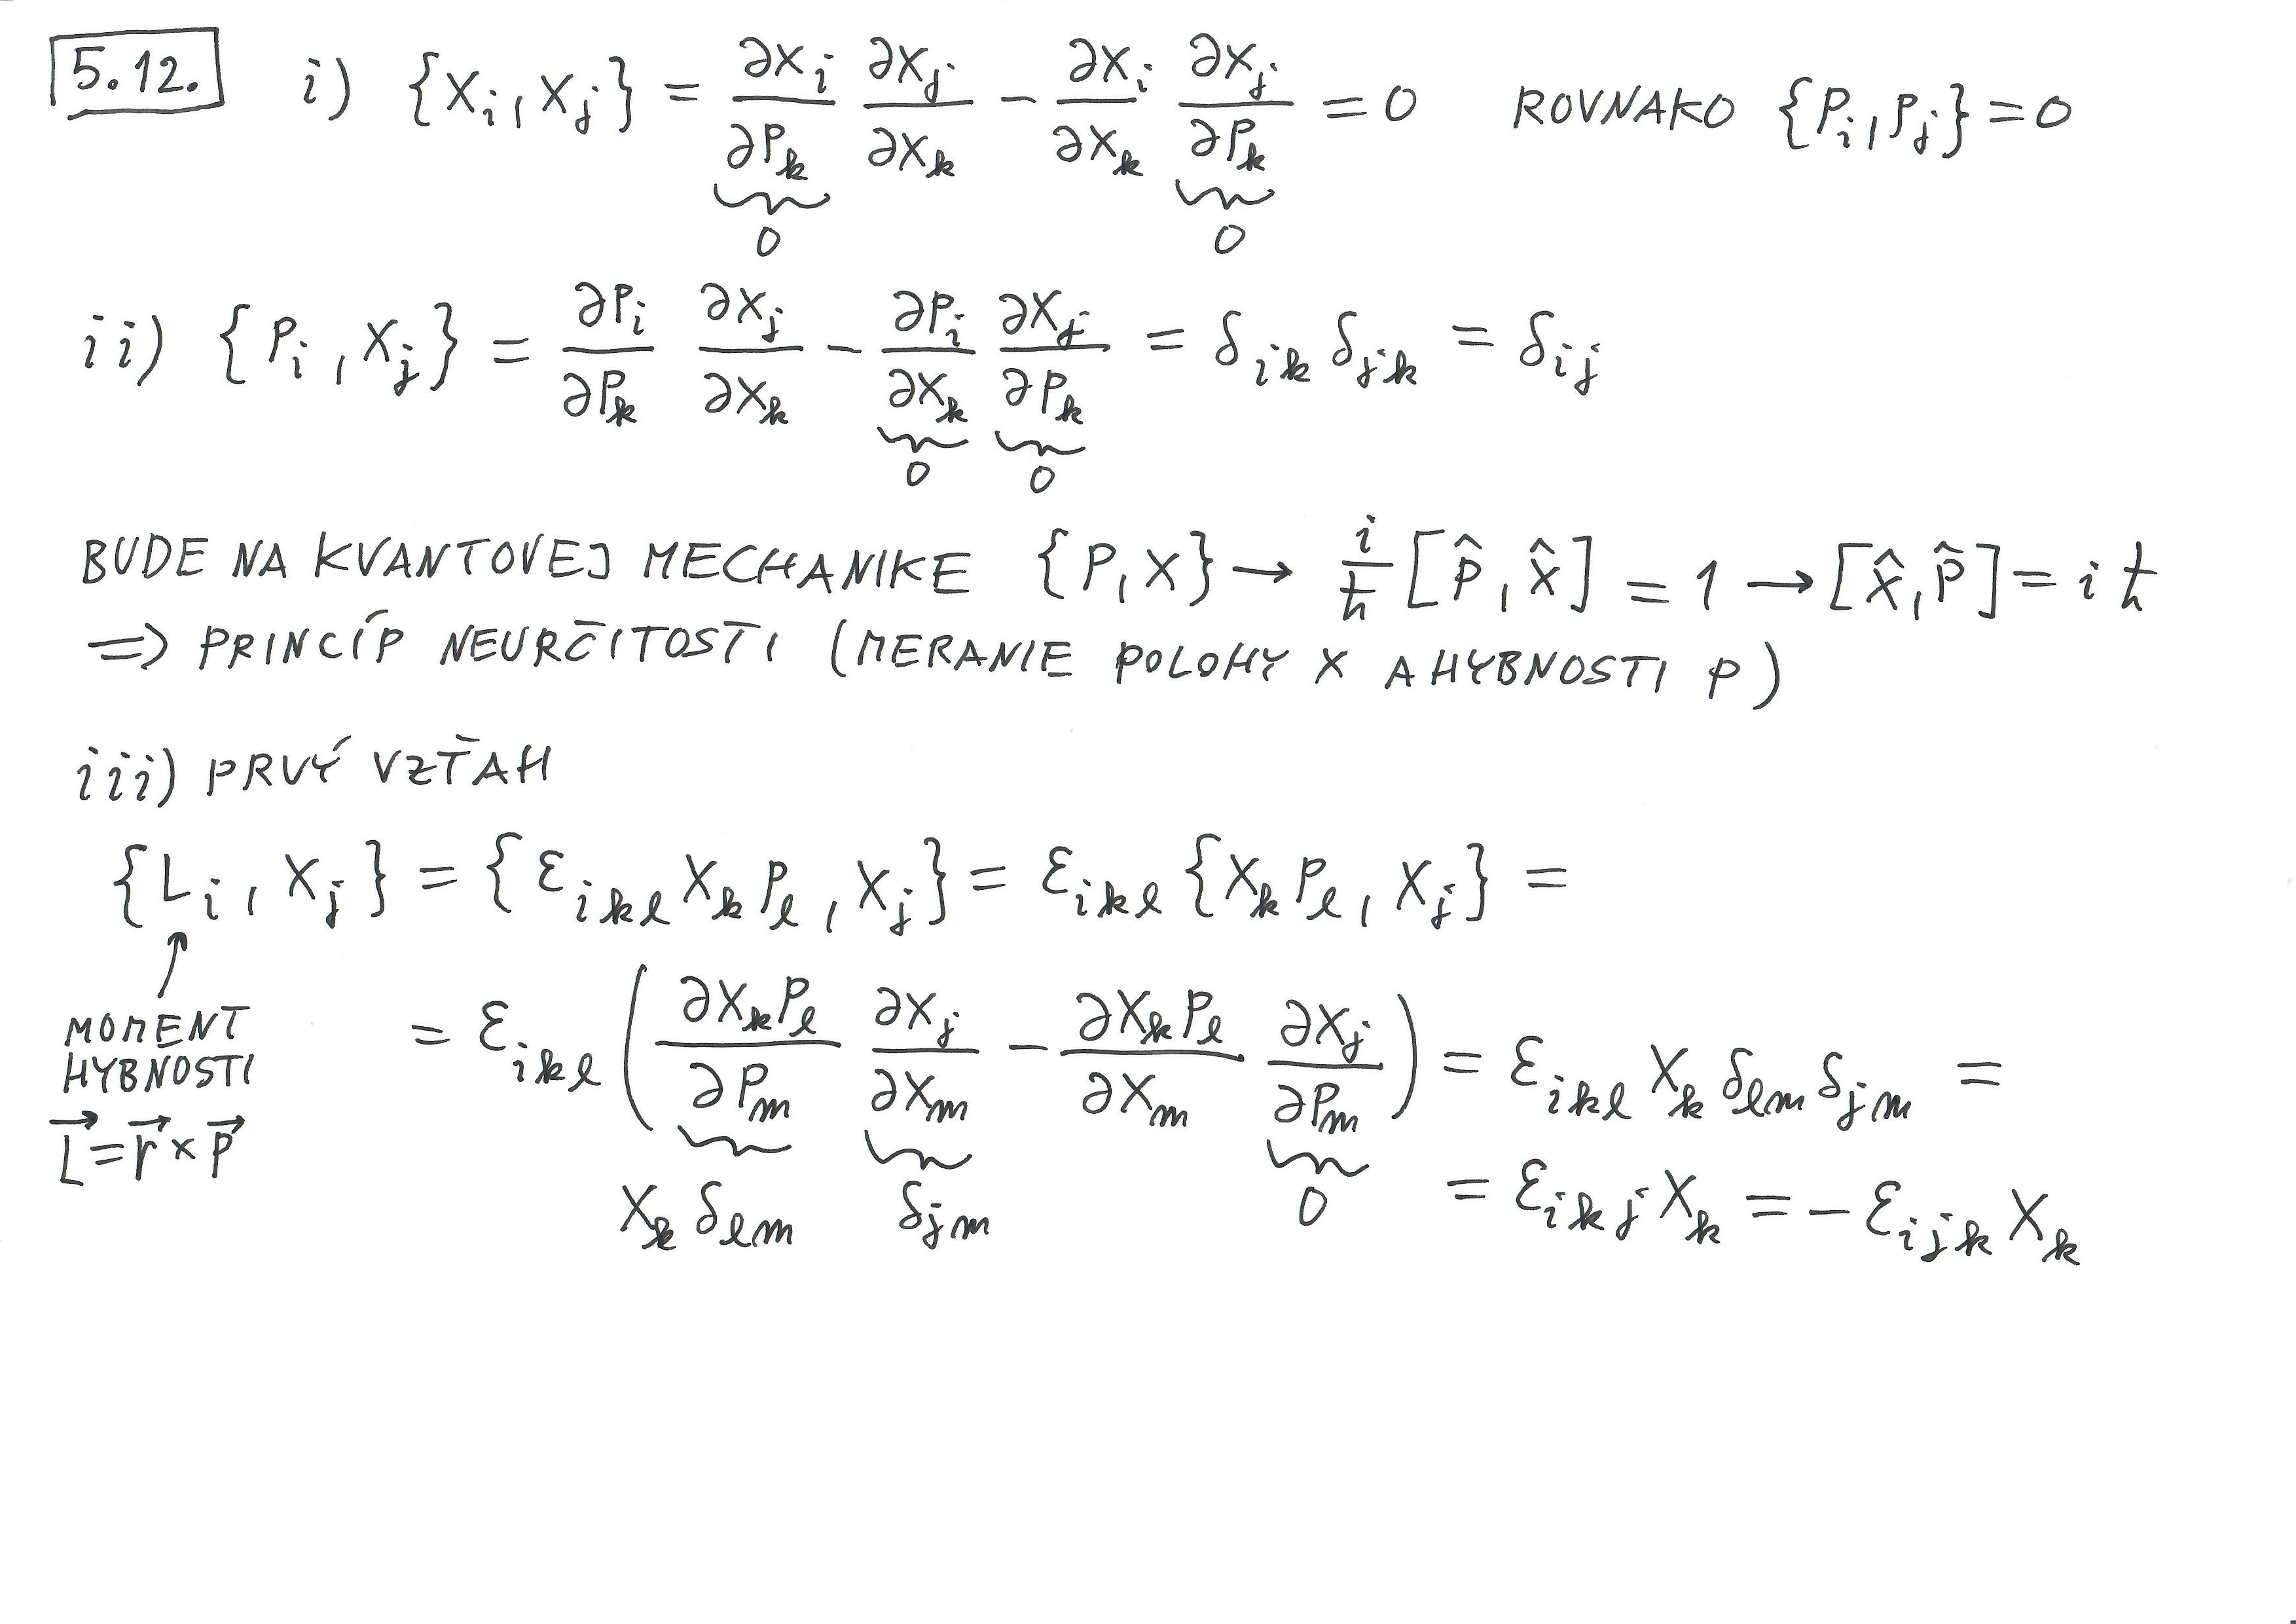 5.12. i) {x_i, x_j} = ∂x_i/∂p_k ∂x_j/∂x_k − ∂x_i/∂x_k ∂x_j/∂p_k = 0 ROVNAKO {p_i, p_j} = 0
0 0
ii) {p_i, x_j} = ∂p_i/∂p_k ∂x_j/∂x_k − ∂p_i/∂x_k ∂x_j/∂p_k = δ_ik δ_jk = δ_ij
0 0
BUDE NA KVANTOVEJ MECHANIKE {p, x} → i/ħ [p̂, x̂] = 1 → [x̂, p̂] = iħ
⇒ PRINCÍP NEURČITOSTI (MERANIE POLOHY x A HYBNOSTI p)
iii) PRVÝ VZŤAH
{L_i, x_j} = {ε_ikl x_k p_l, x_j} = ε_ikl {x_k p_l, x_j} =
↑
MOMENT
HYBNOSTI
L⃗ = r⃗ × p⃗
= ε_ikl (∂x_k p_l/∂p_m ∂x_j/∂x_m − ∂x_k p_l/∂x_m ∂x_j/∂p_m) = ε_ikl x_k δ_lm δ_jm =
x_k δ_lm δ_jm 0
= ε_ikj x_k = −ε_ijk x_k